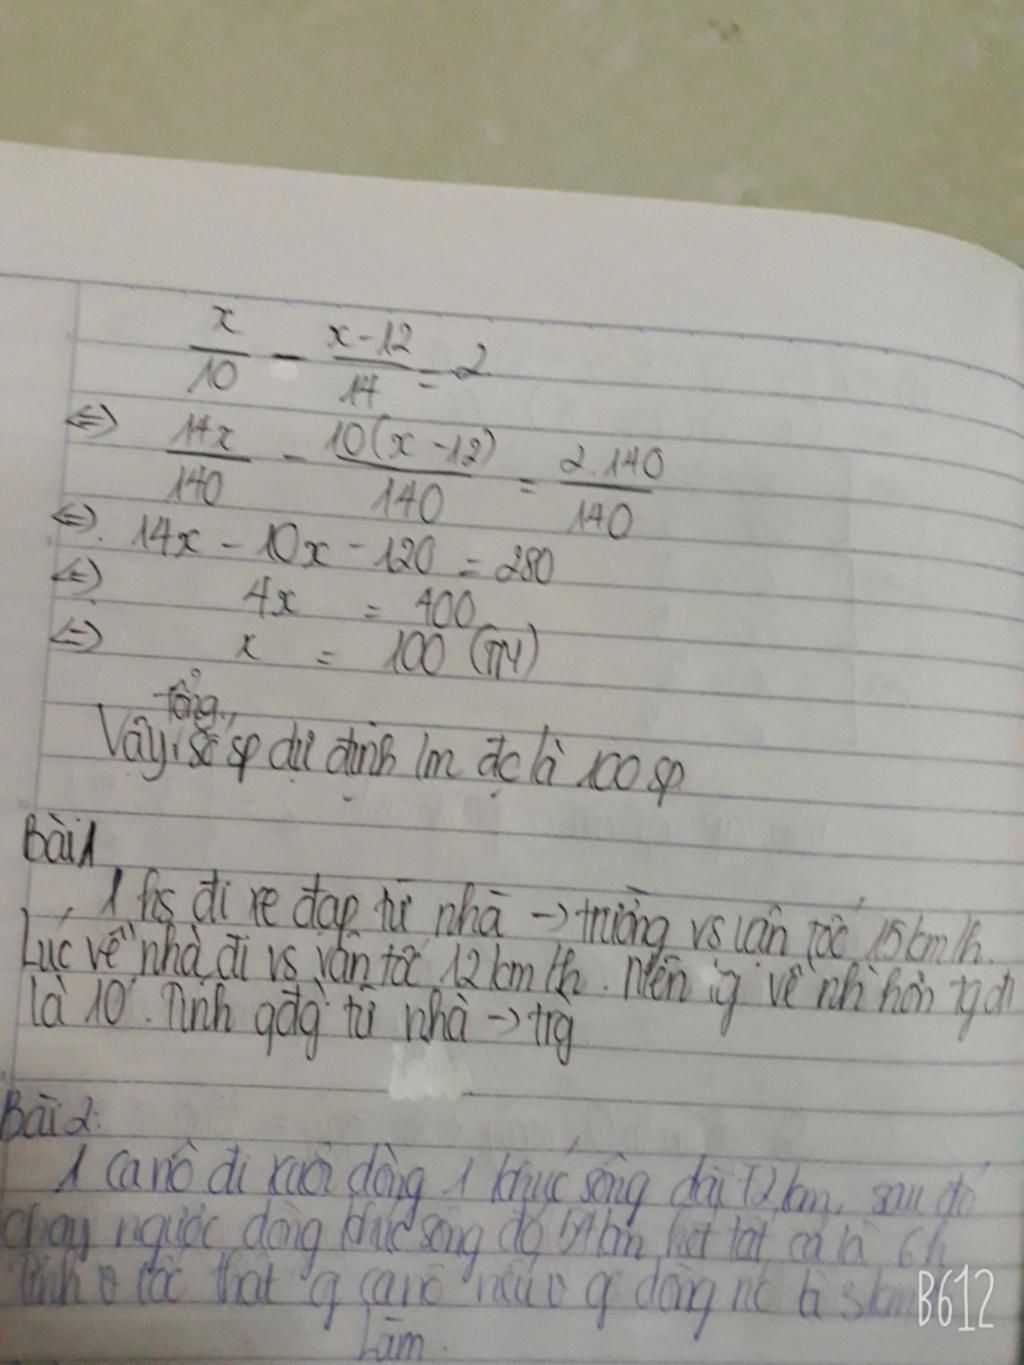 x/10 - x-12/14 = 2
⇔ 14x/140 - 10(x-12)/140 = 2.140/140
⇔ 14x - 10x - 120 = 280
⇔ 4x = 400
⇔ x = 100 (TM)
tổng
Vậy, số sp dự định lm đc là 100 sp
Bài 1
1 hs đi xe đạp từ nhà → trường vs vận tốc 15 km/h.
Lúc về nhà đi vs vận tốc 12 km/h. Nên về hơn tg đi
là 10'. Tính qđg từ nhà → trg
Bài 2:
1 canô đi xuôi dòng 1 khúc sông dài 72 km, sau đó
chạy ngược dòng khúc sông đó 54 km hết tất cả là 6h
Tính v tốc thật canô nếu v dòng nc là 3 km
Làm.
B612